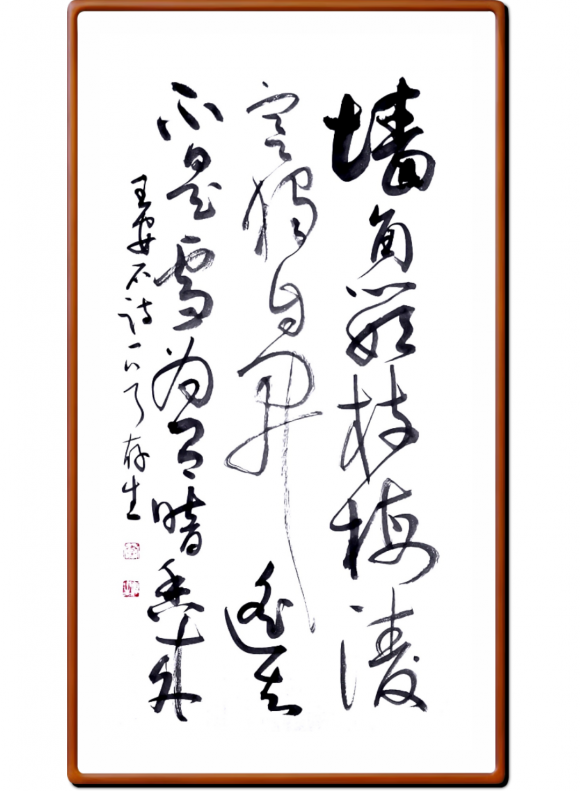 墙角数枝梅凌
寒独自开 遥知
不是雪为有暗香来
王安石诗一首 存生